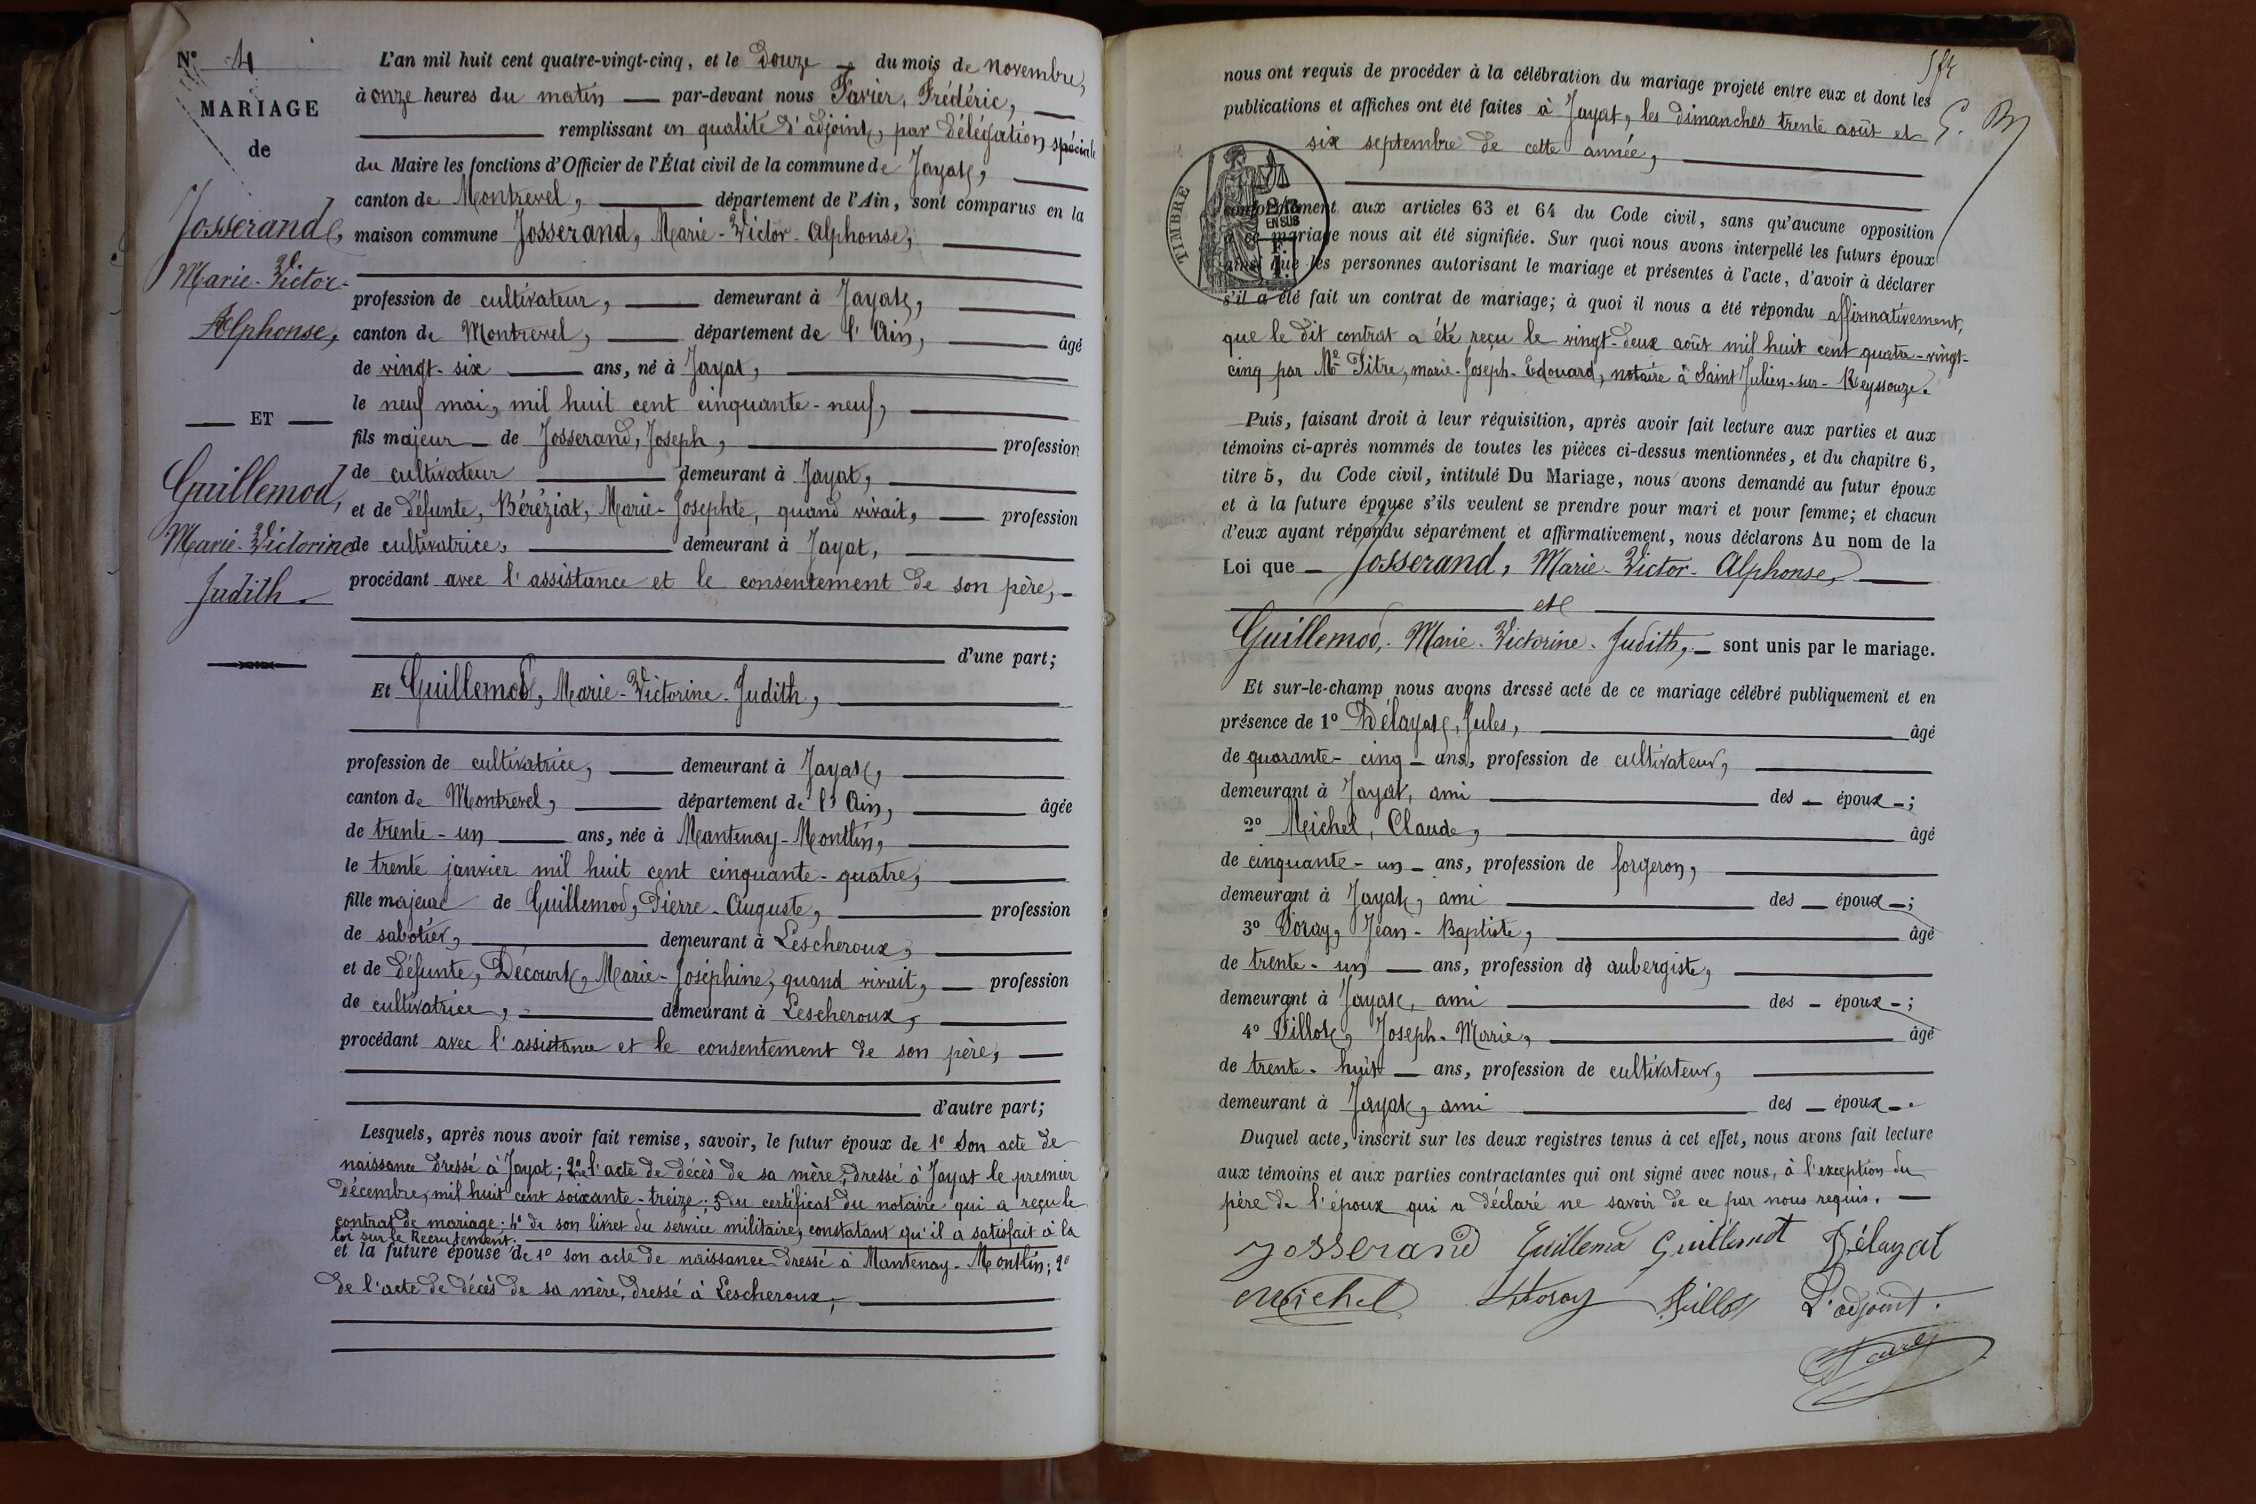 N° 4
MARIAGE
de
Josserand,
Marie-Victor-
Alphonse,
ET
Guillemod,
Marie-Victorine
Judith.
L'an mil huit cent quatre-vingt-cinq, et le Douze du mois de novembre,
à onze heures du matin par-devant nous Favier, Frédéric,
remplissant en qualité d'adjoint, par délégation spéciale
du Maire les fonctions d'Officier de l'État civil de la commune de Jayat,
canton de Montrevel, département de l'Ain, sont comparus en la
maison commune Josserand, Marie-Victor-Alphonse,
profession de cultivateur, demeurant à Jayat,
canton de Montrevel, département de l'Ain, âgé
de vingt-six ans, né à Jayat,
le neuf mai, mil huit cent cinquante-neuf,
fils majeur de Josserand, Joseph, profession
de cultivateur demeurant à Jayat,
et de défunte, Béréziat, Marie-Josephte, quand vivait, profession
de cultivatrice, demeurant à Jayat,
procédant avec l'assistance et le consentement de son père,
d'une part;
Et Guillemod, Marie-Victorine-Judith,
profession de cultivatrice, demeurant à Jayat,
canton de Montrevel, département de l'Ain, âgée
de trente-un ans, née à Mantenay-Montlin,
le trente janvier mil huit cent cinquante-quatre,
fille majeure de Guillemod, Pierre-Auguste, profession
de sabotier, demeurant à Lescheroux,
et de défunte, Décourt, Marie-Joséphine, quand vivait, profession
de cultivatrice, demeurant à Lescheroux,
procédant avec l'assistance et le consentement de son père,
d'autre part;
Lesquels, après nous avoir fait remise, savoir, le futur époux de 1° Son acte de
naissance dressé à Jayat; 2° de l'acte de décès de sa mère, dressé à Jayat le premier
décembre, mil huit cent soixante-treize; 3° du certificat du notaire qui a reçu le
contrat de mariage; 4° de son livret du service militaire, constatant qu'il a satisfait à la
loi sur le Recrutement.
et la future épouse de 1° son acte de naissance dressé à Mantenay-Montlin; 2°
de l'acte de décès de sa mère, dressé à Lescheroux,
nous ont requis de procéder à la célébration du mariage projeté entre eux et dont les
publications et affiches ont été faites à Jayat, les dimanches trente août et
six septembre de cette année,
TIMBRE
EN SUS
conformément aux articles 63 et 64 du Code civil, sans qu'aucune opposition
à ce mariage nous ait été signifiée. Sur quoi nous avons interpellé les futurs époux
ainsi que les personnes autorisant le mariage et présentes à l'acte, d'avoir à déclarer
s'il a été fait un contrat de mariage; à quoi il nous a été répondu affirmativement,
que le dit contrat a été reçu le vingt-deux août mil huit cent quatre-vingt-
cinq par Me Titre, marie-Joseph-Edouard, notaire à Saint Julien-sur-Reyssouze.
Puis, faisant droit à leur réquisition, après avoir fait lecture aux parties et aux
témoins ci-après nommés de toutes les pièces ci-dessus mentionnées, et du chapitre 6,
titre 5, du Code civil, intitulé Du Mariage, nous avons demandé au futur époux
et à la future épouse s'ils veulent se prendre pour mari et pour femme; et chacun
d'eux ayant répondu séparément et affirmativement, nous déclarons Au nom de la
Loi que Josserand, Marie-Victor-Alphonse,
et
Guillemod, Marie-Victorine-Judith, sont unis par le mariage.
Et sur-le-champ nous avons dressé acte de ce mariage célébré publiquement et en
présence de 1° Délayat, Jules, âgé
de quarante-cinq ans, profession de cultivateur,
demeurant à Jayat, ami des époux;
2° Michel, Claude, âgé
de cinquante-un ans, profession de forgeron,
demeurant à Jayat, ami des époux;
3° Voray, Jean-Baptiste, âgé
de trente-un ans, profession de aubergiste,
demeurant à Jayat, ami des époux;
4° Villot, Joseph-Marie, âgé
de trente-huit ans, profession de cultivateur,
demeurant à Jayat, ami des époux.
Duquel acte, inscrit sur les deux registres tenus à cet effet, nous avons fait lecture
aux témoins et aux parties contractantes qui ont signé avec nous, à l'exception du
père de l'époux qui a déclaré ne savoir de ce par nous requis.
Josserand Guillemod Guillemot Délayat
Michel Voray Villot L'adjoint.